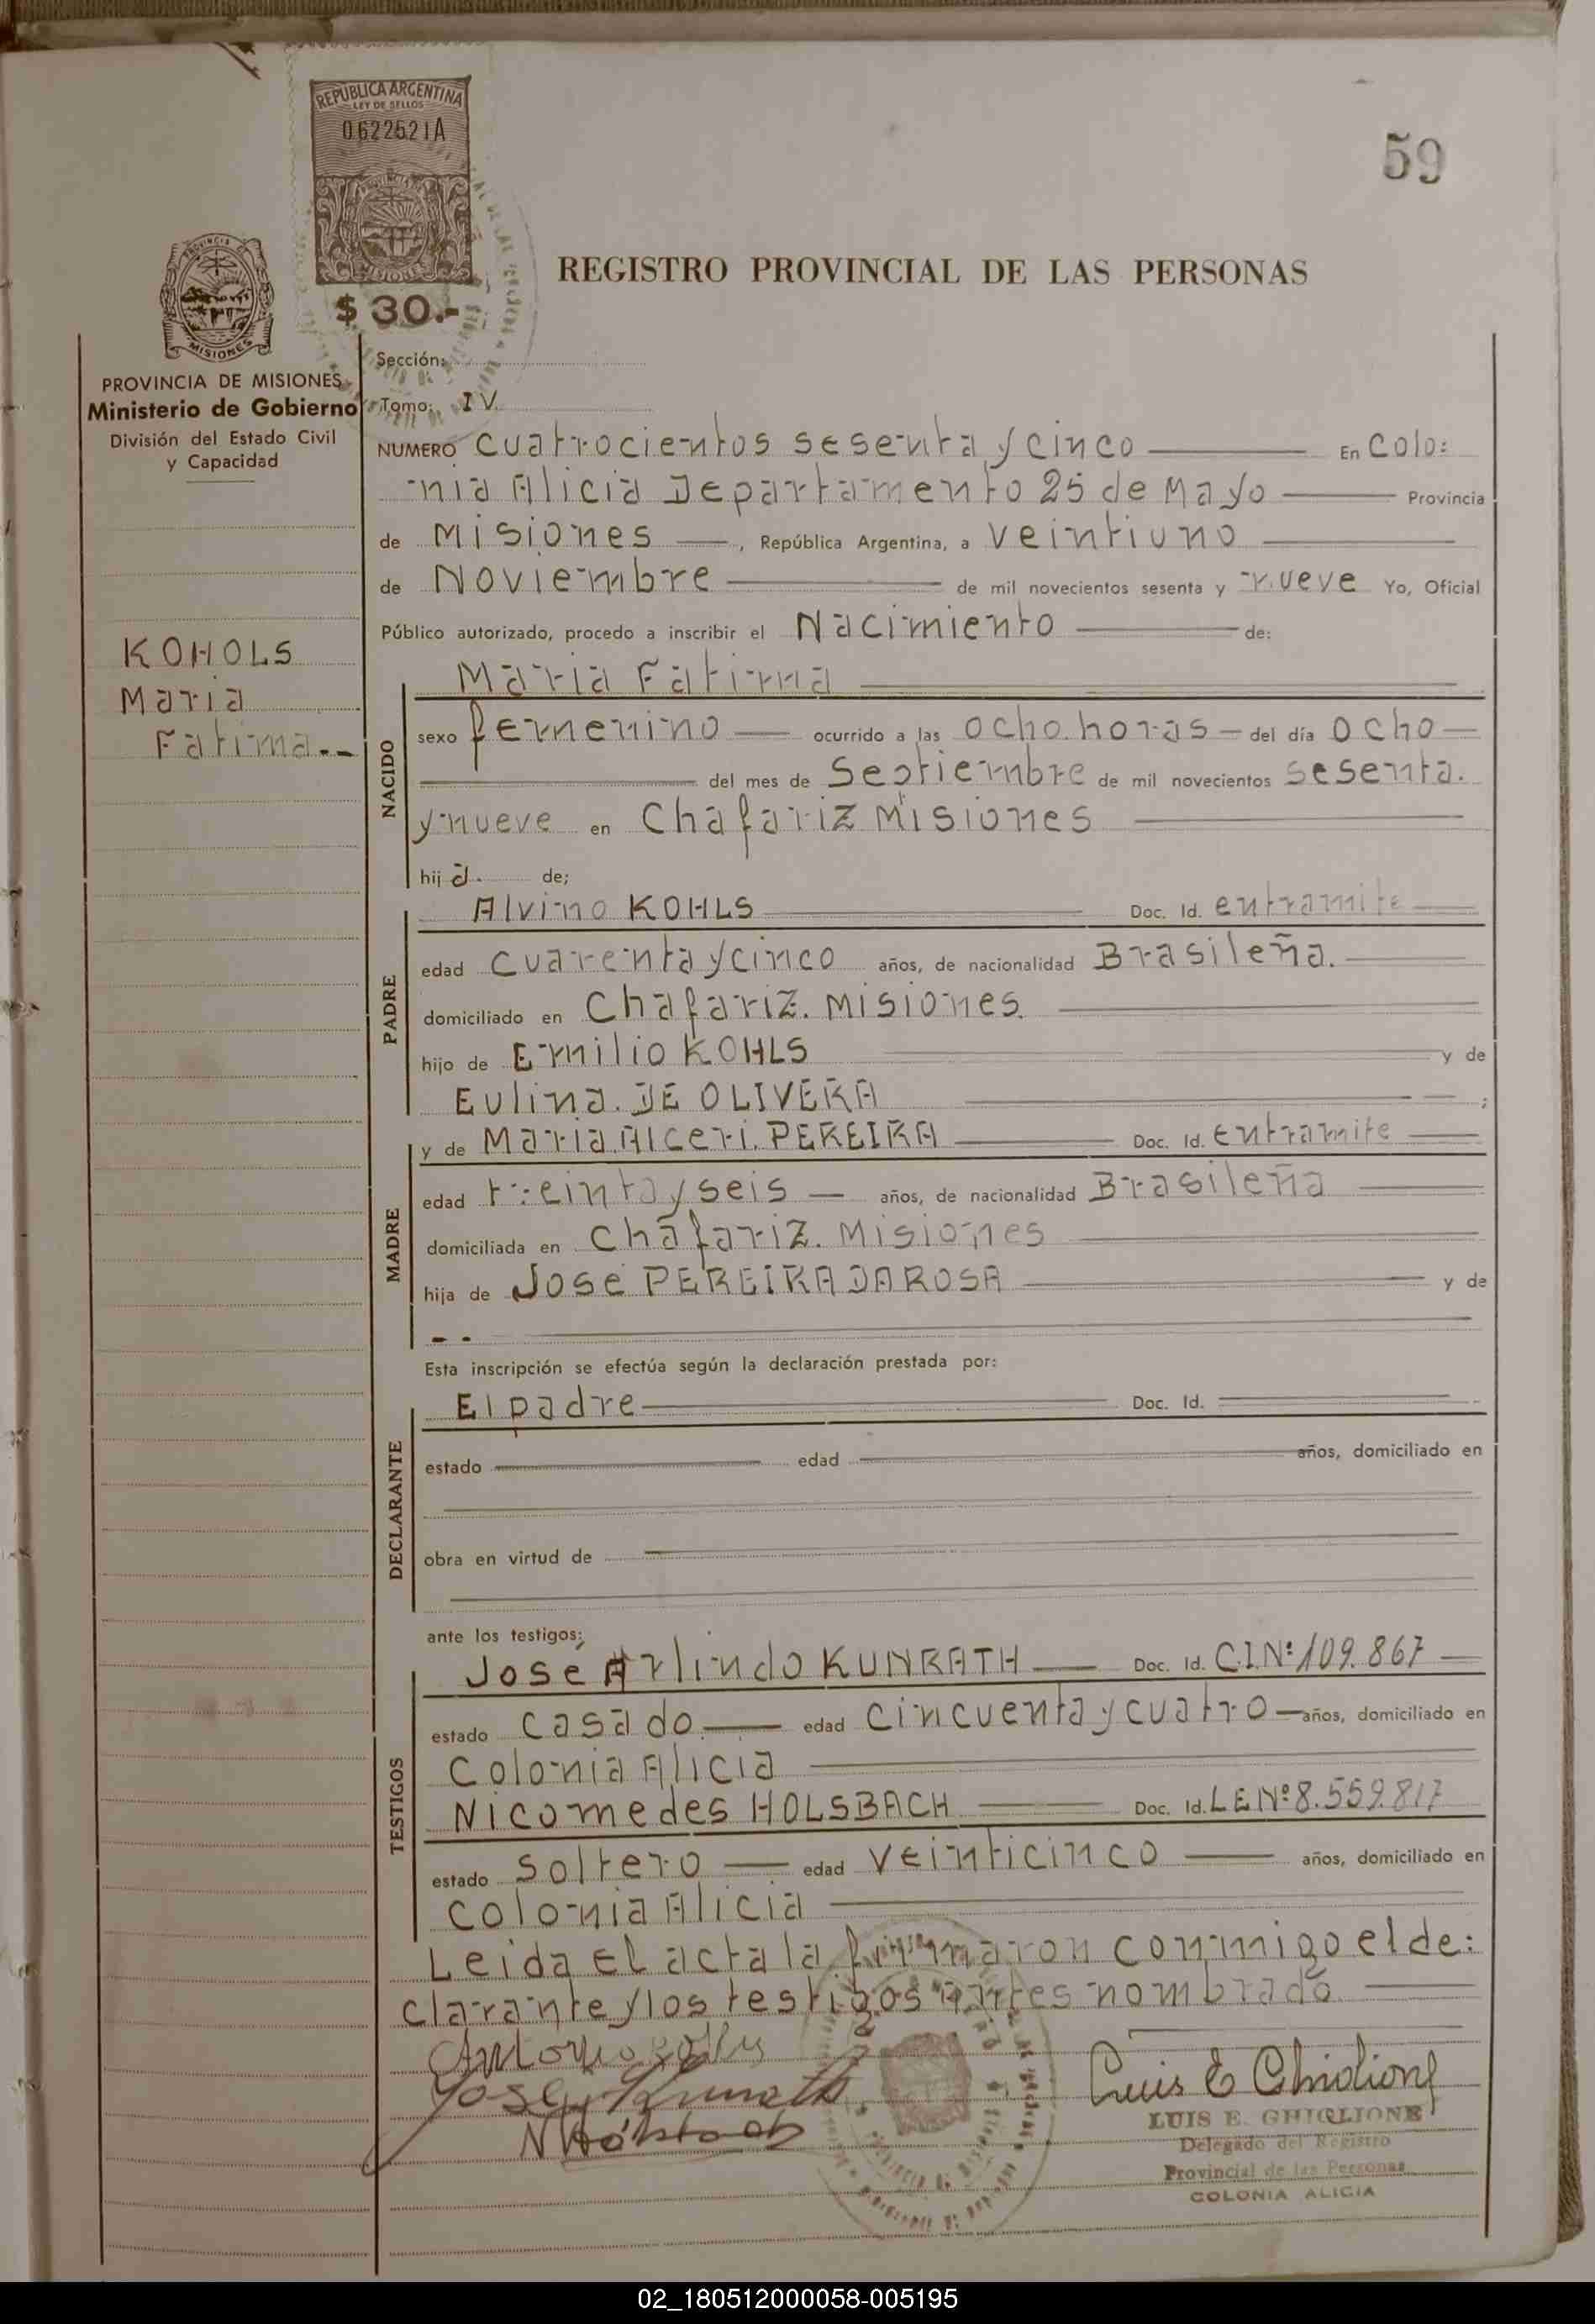 REPUBLICA ARGENTINA
LEY DE SELLOS
0622521A
PROVINCIA DE
MISIONES
$ 30.-
59
REGISTRO PROVINCIAL DE LAS PERSONAS
MISIONES
PROVINCIA DE MISIONES
Ministerio de Gobierno
División del Estado Civil
y Capacidad
KOHOLS
Maria
Fatima.--
Sección:
Tomo: IV.
NUMERO cuatrocientos sesenta y cinco En Colo:
nia Alicia Departamento 25 de Mayo Provincia
de Misiones , República Argentina, a veintiuno
de Noviembre de mil novecientos sesenta y nueve Yo, Oficial
Público autorizado, procedo a inscribir el Nacimiento de:
NACIDO
Maria Fatima
sexo femenino ocurrido a las ocho horas del día ocho
del mes de Septiembre de mil novecientos sesenta.
y nueve en Chafariz Misiones
hij a. de;
PADRE
Alvino KOHLS Doc. Id. entramite
edad cuarenta y cinco años, de nacionalidad Brasileña.
domiciliado en Chafariz. Misiones.
hijo de Emilio KOHLS y de
Eulina. DE OLIVERA ;
MADRE
y de Maria. Alceri. PEREIRA Doc. Id. entramite
edad treinta y seis años, de nacionalidad Brasileña
domiciliada en Chafariz. Misiones
hija de Jose PEREIRA DA ROSA y de
- -
Esta inscripción se efectúa según la declaración prestada por:
DECLARANTE
El padre Doc. Id.
estado edad años, domiciliado en
obra en virtud de
ante los testigos;
TESTIGOS
José Arlindo KUNRATH Doc. Id. C.I.Nº 109.867
estado casado edad cincuenta y cuatro años, domiciliado en
Colonia Alicia
Nicomedes HOLSBACH Doc. Id. L E Nº 8.559.817
estado soltero edad veinticinco años, domiciliado en
Colonia Alicia
Leida el acta la firmaron conmigo el de:
clarante y los testigos antes nombrado
Luis E Ghiglione
LUIS E. GHIGLIONE
Delegado del Registro
Provincial de las Personas
COLONIA ALICIA
02_180512000058-005195